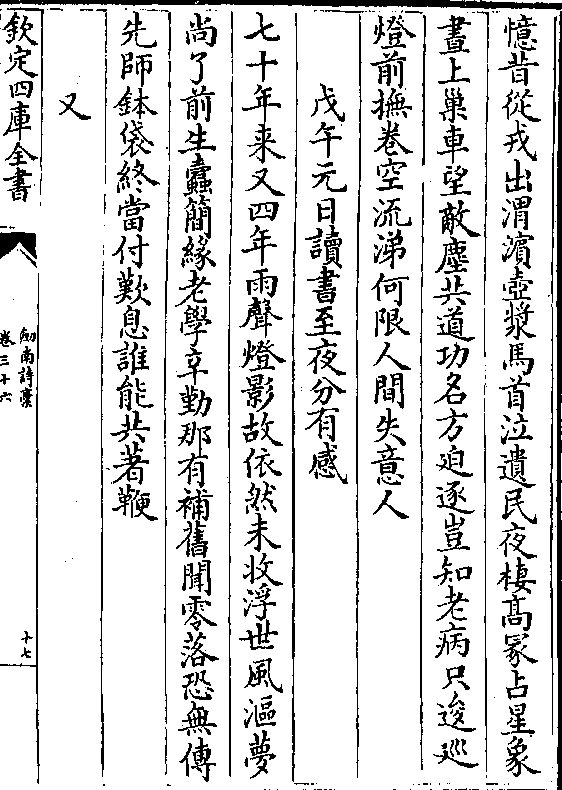 憶昔從戎出渭濵壺漿馬首泣遺民夜棲髙冢占星象
晝上巢車望敵塵共道功名方迫逐豈知老病只逡廵
燈前撫卷空流涕何限人間失意人
戊午元日讀書至夜分有感
七十年来又四年雨聲燈影故依然未收浮世風漚夢
尚了前生蠧簡緣老學辛勤那有補舊聞零落恐無傳
先師鉢袋終當付歎息誰能共著鞭
又
欽定四庫全書
劒南詩藁
卷三十六
十七